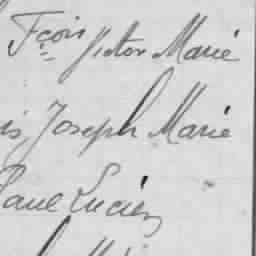 Fçois Victor Marie
is Joseph Marie
Paul Lucien